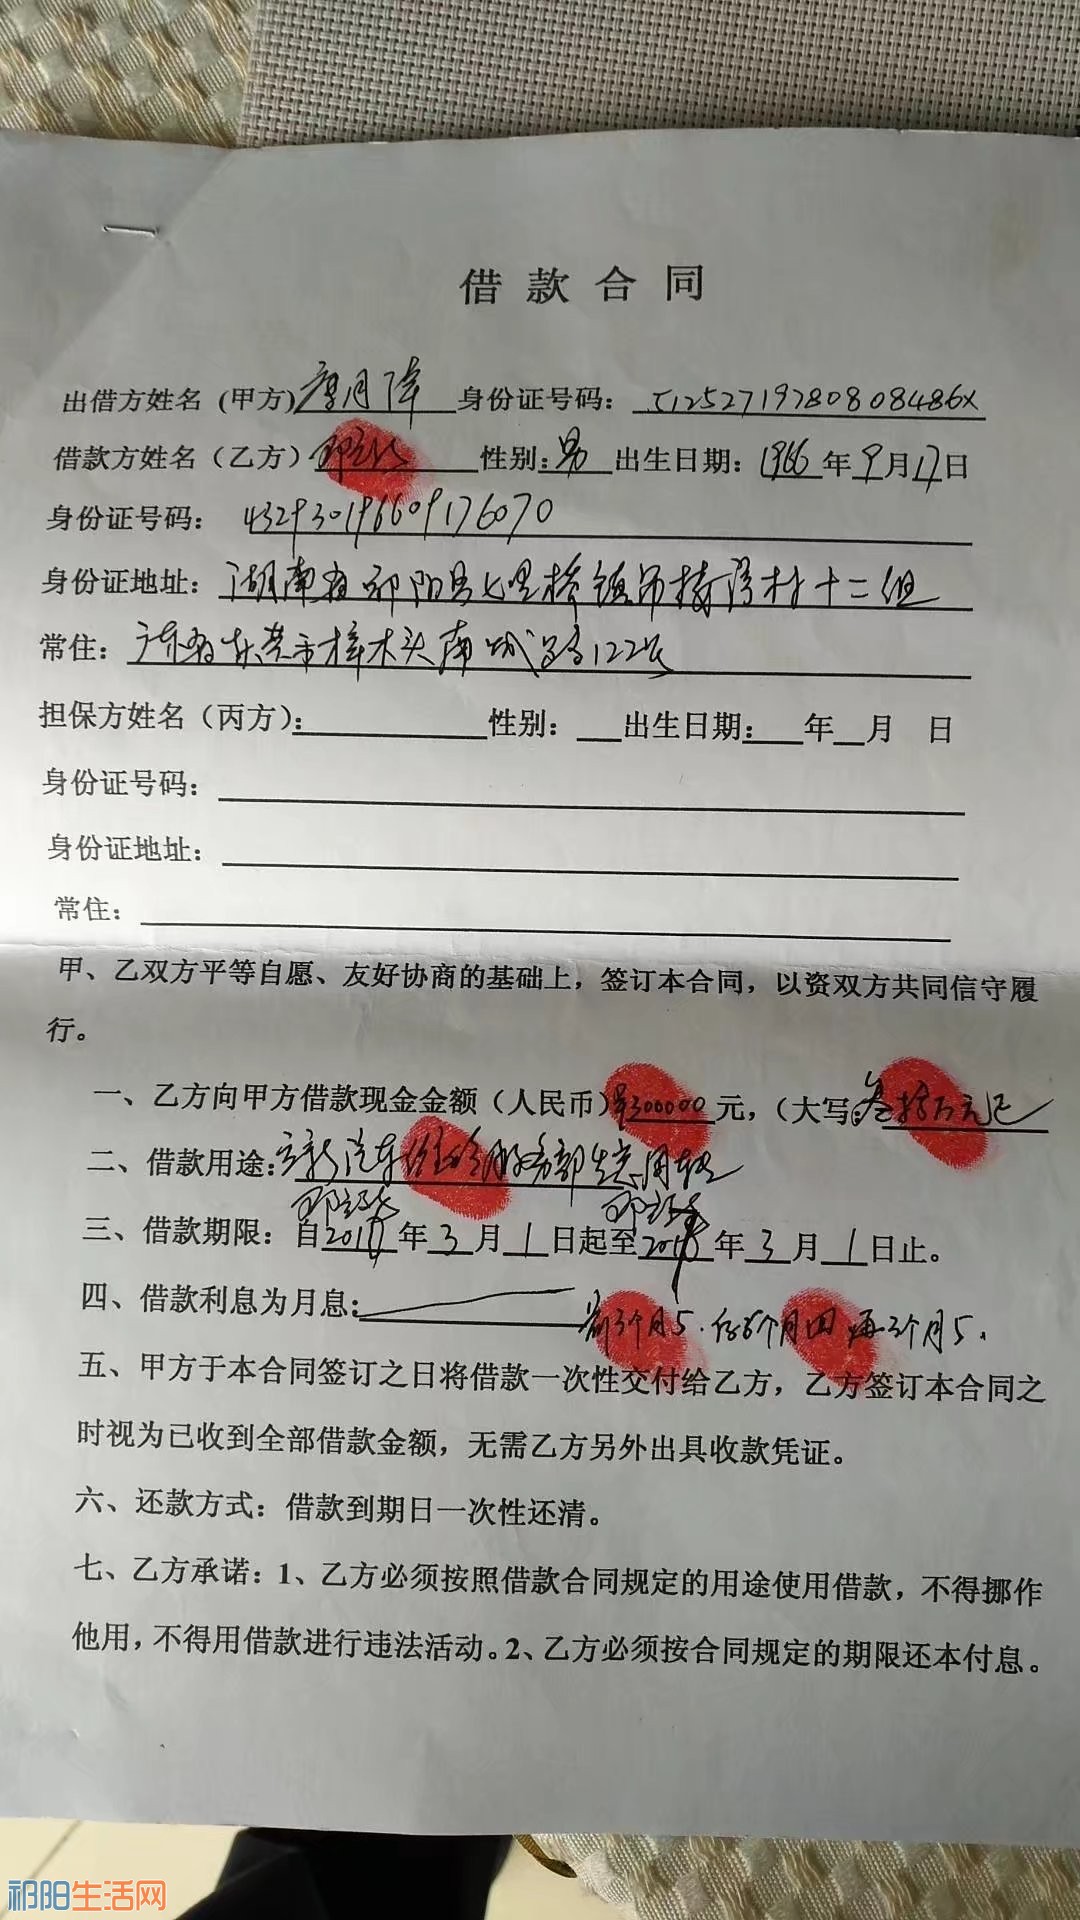 借款合同
出借方姓名（甲方）廖月 身份证号码：51252719780808486X
借款方姓名（乙方）邓 性别：男 出生日期：1966年9月17日
身份证号码：432930196609176070
身份证地址：湖南省祁阳县七里桥镇 村十二组
常住：广东省东莞市樟木头南城路122号
担保方姓名（丙方）： 性别： 出生日期： 年 月 日
身份证号码：
身份证地址：
常住：
甲、乙双方平等自愿、友好协商的基础上，签订本合同，以资双方共同信守履
行。
一、乙方向甲方借款现金金额（人民币）300000元，（大写：叁拾万元正
二、借款用途：汽车 服务部生意周转
三、借款期限：自 年3月1日起至 年3月1日止。
四、借款利息为月息： 前3个月5. 6个月四 再3个月5.
五、甲方于本合同签订之日将借款一次性交付给乙方，乙方签订本合同之
时视为已收到全部借款金额，无需乙方另外出具收款凭证。
六、还款方式：借款到期日一次性还清。
七、乙方承诺：1、乙方必须按照借款合同规定的用途使用借款，不得挪作
他用，不得用借款进行违法活动。2、乙方必须按合同规定的期限还本付息。
祁阳生活网